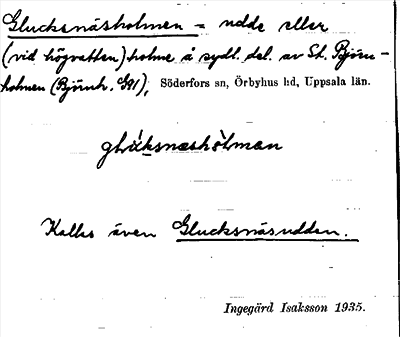 Glucksnäsholmen = udde eller
(vid högvatten) holme å sydl. del. av St. Björn-
holmen (Björnh. G91), Söderfors sn, Örbyhus hd, Uppsala län.
Kallas även Glucksnäsudden.
Ingegärd Isaksson 1935.